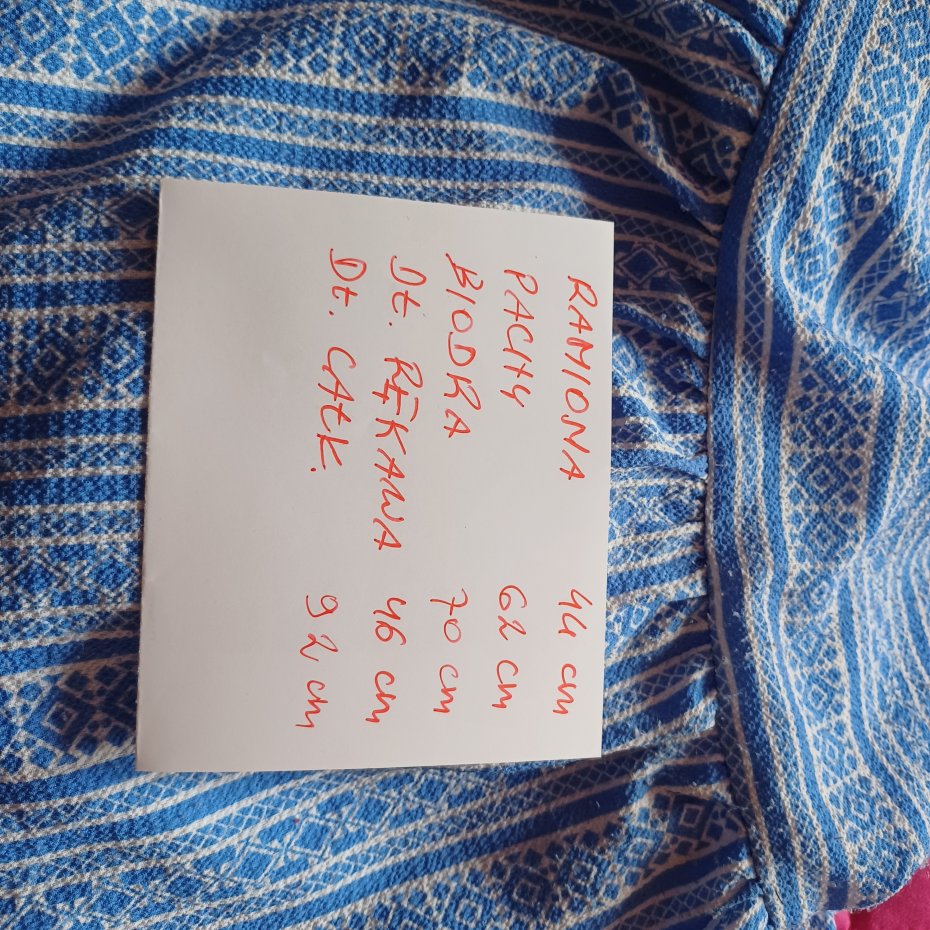 RAMIONA 44 cm
PACHY 62 cm
BIODRA 70 cm
Dł. RĘKAWA 46 cm
Dł. CAŁK. 92 cm